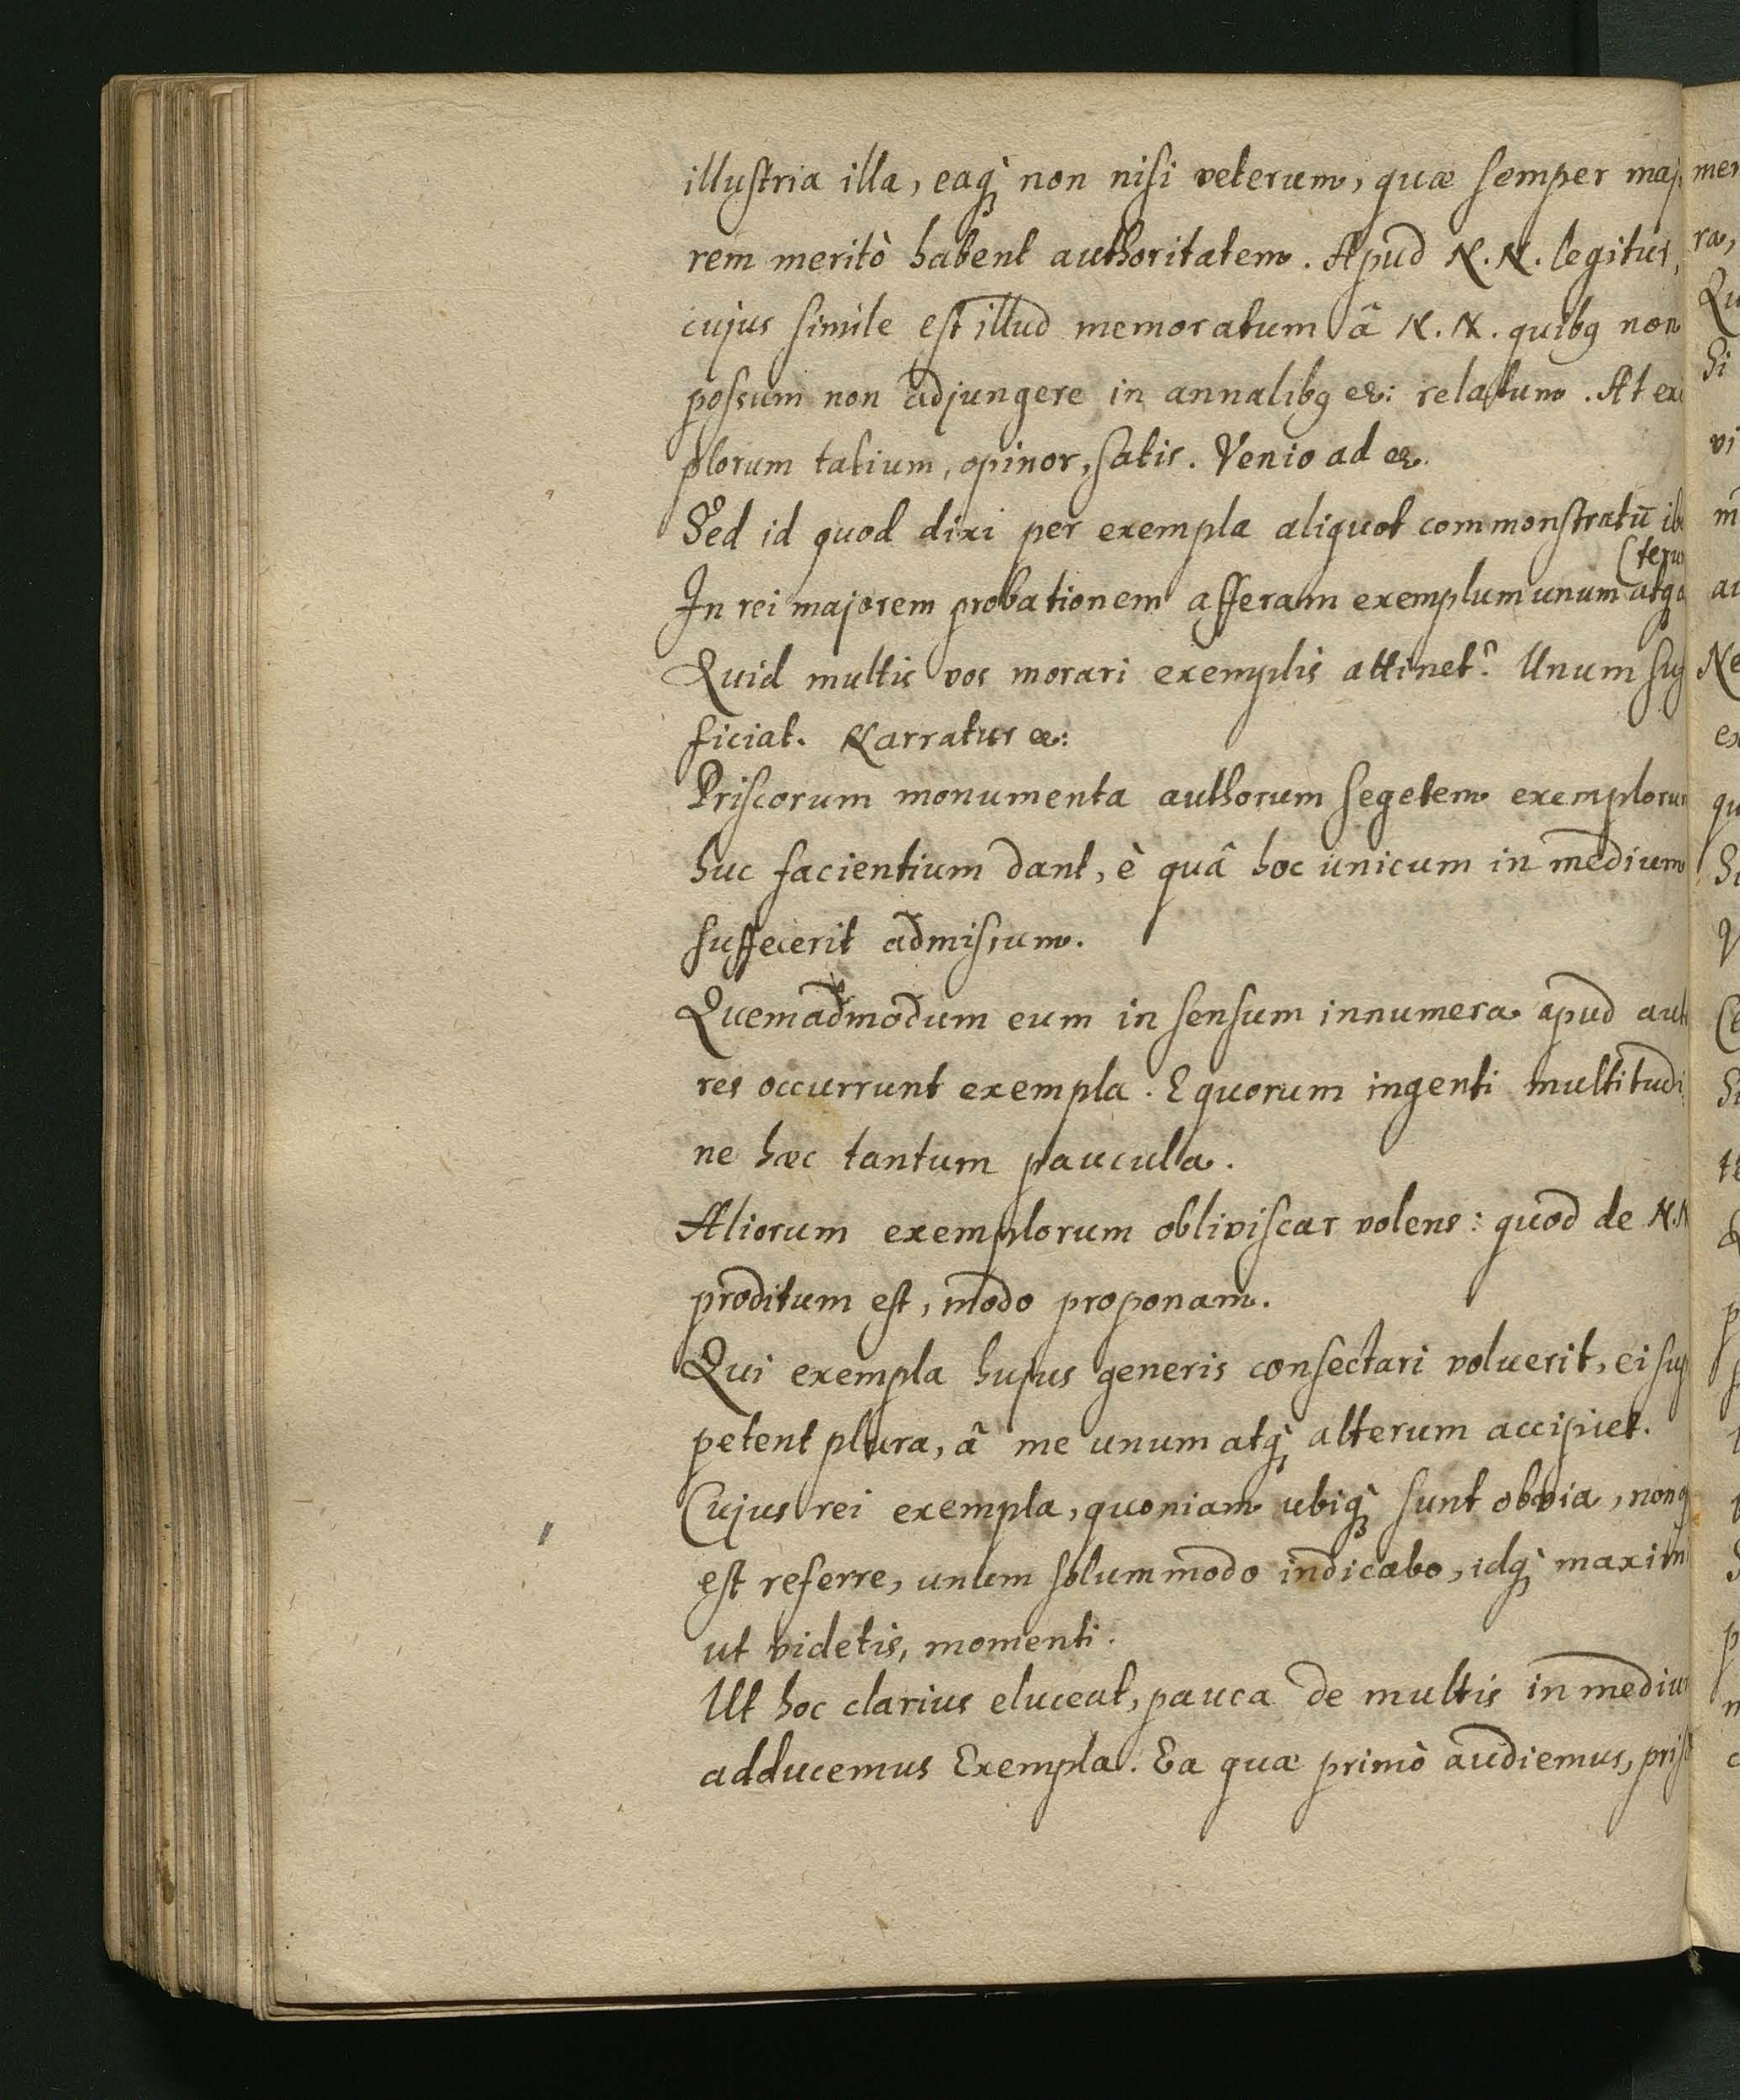 illustria illa, eaq́; non nisi veterum, quæ semper maj
rem meritò habent authoritatem. Apud N. N. legitur,
cujus simile est illud memoratum â N. N. quibꝫ non
possum non adjungere in annalibꝫ &: relatum. At ex
plorum talium, opinor, satis. Venio ad &.
Sed id quod dixi per exempla aliquot commonstratū ib
(teru
In rei majorem probationem afferam exemplum unum atq
Quid multis vos morari exemplis attinet? Unum suf
ficiat. Narratur &:
Priscorum monumenta authorum segetem exemplorum
huc facientium dant, è quâ hoc unicum in medium
suffecerit admissum.
Quemadmodum eum in sensum innumera apud aut
res occurrunt exempla. E quorum ingenti multitudi
ne hæc tantum paucula.
Aliorum exemplorum obliviscar volens: quod de N. N
proditum est, modo proponam.
Qui exempla hujus generis consectari voluerit, ei sup
petent plura, â me unum atq́; alterum accipiet.
Cujus rei exempla, quoniam ubiq́; sunt obvia, non
est referre, unum solummodo indicabo, idq́; maxim
ut videtis, momenti.
Ut hoc clarius eluceat, pauca de multis in mediu
adducemus Exempla. Ea quæ primò audiemus, pris